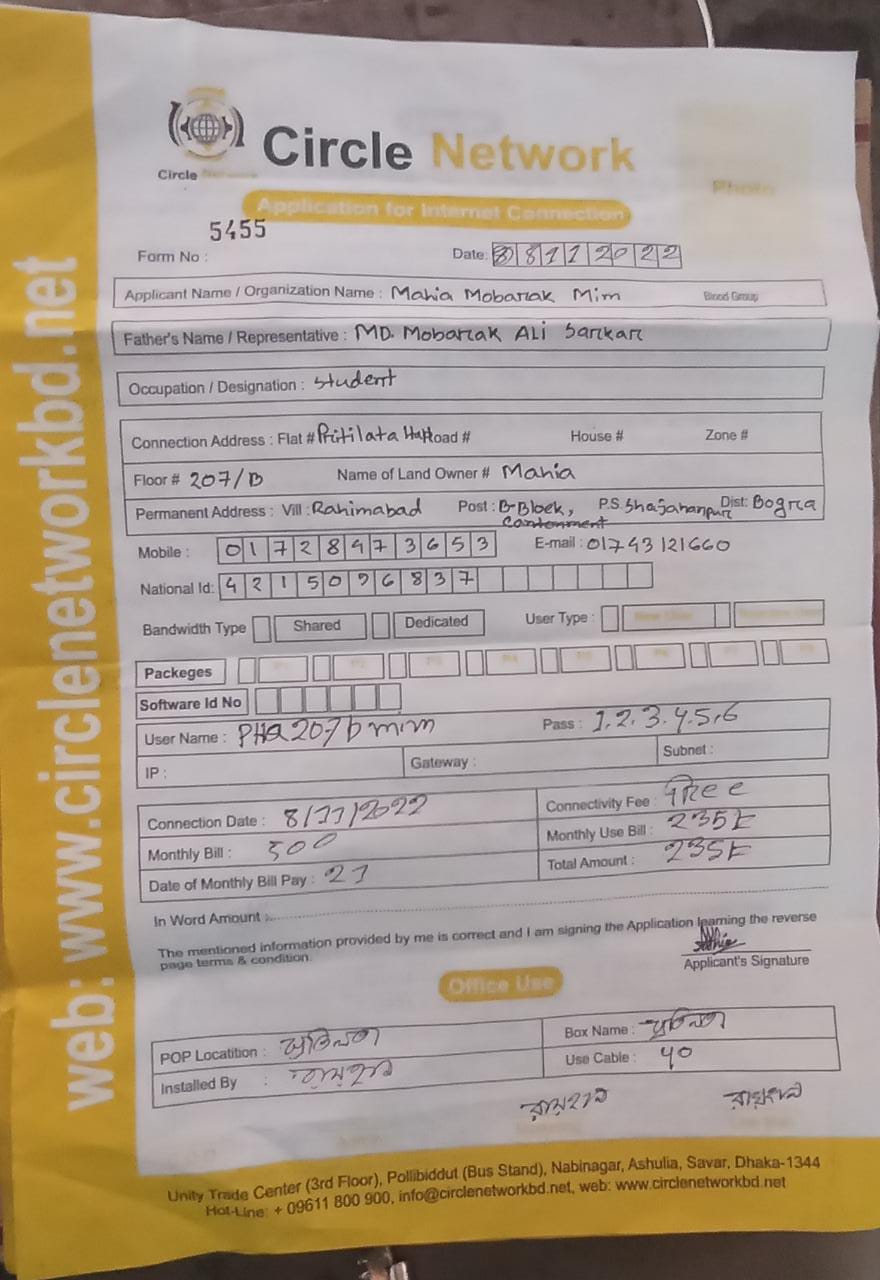 Circle Network
Circle Network
Photo
Application for Internet Connection
5455
Form No :
Date: 08112022
Applicant Name / Organization Name : Mahia Mobarak Mim Blood Group
Father's Name / Representative : MD. Mobarak Ali Sarkar
Occupation / Designation : Student
Connection Address : Flat # Pritilata Hall Road # House # Zone #
Floor # 207/B Name of Land Owner # Mahia
Permanent Address : Vill : Rahimabad Post : B-Block, Cantonment P.S. Shajahanpur Dist: Bogra
Mobile : 01728473653 E-mail : 01743121660
National Id: 4215096837
Bandwidth Type Shared Dedicated User Type :
Packeges
Software Id No
User Name : PHQ207bmim Pass : 1.2.3.4.5.6
IP : Gateway : Subnet :
Connection Date : 8/11/2022 Connectivity Fee : Free
Monthly Bill : 500 Monthly Use Bill : 235
Date of Monthly Bill Pay : 21 Total Amount : 235
In Word Amount :
The mentioned information provided by me is correct and I am signing the Application learning the reverse
page terms & condition.
Applicant's Signature
Office Use
POP Locatition : প্রীতিলতা Box Name : প্রীতিলতা
Installed By : Use Cable : 40
রায়হান রায়হান
Unity Trade Center (3rd Floor), Pollibiddut (Bus Stand), Nabinagar, Ashulia, Savar, Dhaka-1344
Hot-Line: + 09611 800 900, info@circlenetworkbd.net, web: www.circlenetworkbd.net
web: www.circlenetworkbd.net